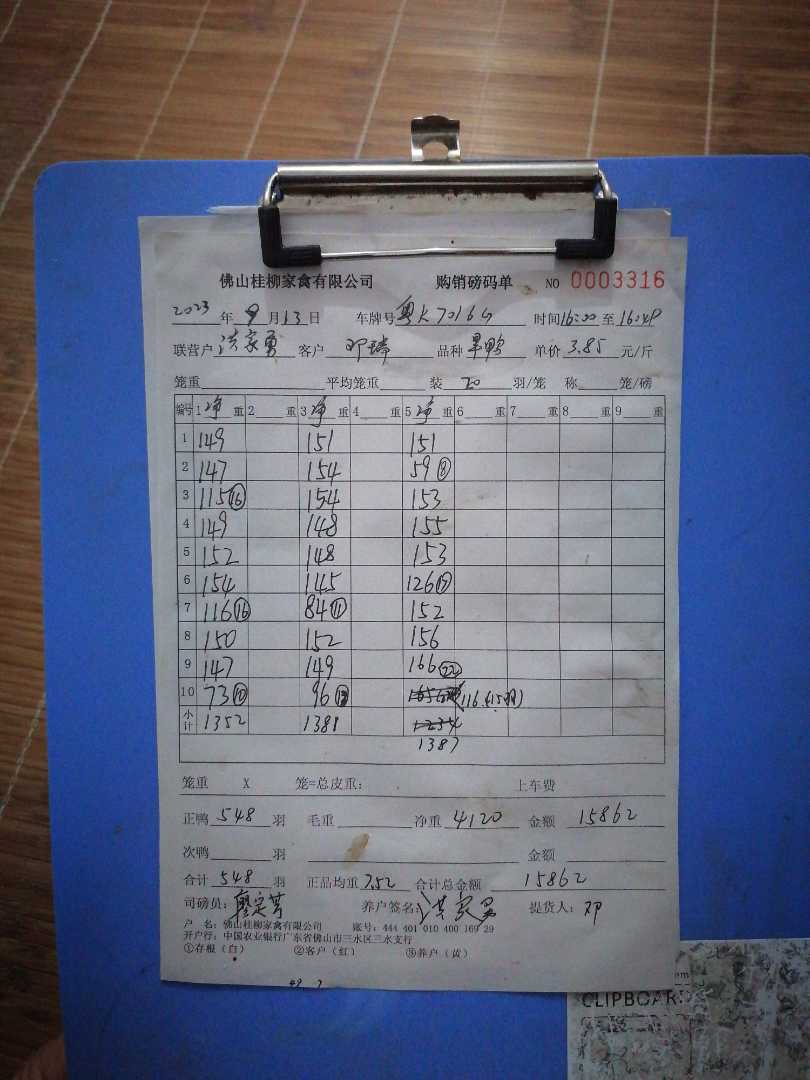 佛山桂柳家禽有限公司 购销磅码单 NO 0003316
2023 年 9 月 13 日 车牌号 粤K70164 时间 16:00 至 16:49
联营户 洪家勇 客户 邓 品种 旱鸭 单价 3.85 元/斤
笼重 平均笼重 装 20 羽/笼 称 笼/磅
编号 1 净 重 2 重 3 净 重 4 重 5 净 重 6 重 7 重 8 重 9 重
1 149 151 151
2 147 154 59 ⑧
3 115 ⑯ 154 153
4 149 148 155
5 152 148 153
6 154 145 126 ⑰
7 116 ⑯ 84 ⑪ 152
8 150 152 156
9 147 149 166 ㉒
10 73 ⑩ 96 116 (15羽)
小计 1352 1381
1387
笼重 X 笼=总皮重: 上车费
正鸭 548 羽 毛重 净重 4120 金额 15862
次鸭 羽 金额
合计 548 羽 正品均重 7.52 合计总金额 15862
司磅员: 养户签名: 洪家勇 提货人: 邓
户 名: 佛山桂柳家禽有限公司 账号: 444 401 010 400 169 29
开户行: 中国农业银行广东省佛山市三水区三水支行
①存根(白) ②客户(红) ③养户(黄)
CLIPBOARD